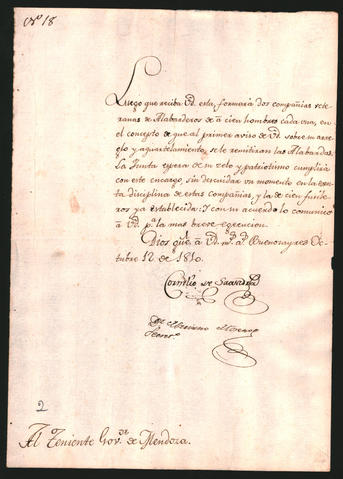 Nº 18
Luego que reciba Vd. esta, formará dos compañias vete-
ranas de Alabarderos de à cien hombres cada una, en
el concepto de que al primer aviso de Vd. sobre su arre-
glo y aquartelamiento, se le remitiran las Alabardas.
La Junta espera de su zelo y patriotismo cumplirá
con este encargo, sin descuidar un momento en la exac-
ta disciplina de estas compañias, y la de cien fusile-
ros ya establecida: Y con su acuerdo lo comunico
à Vd. pª la mas breve egecucion.
Dios gue. à Vd. ms. as. Buenos ayres Oc-
tubre 12 de 1810.
Cornelio de Saavedra
Dr. Mariano Moreno
Secreto.
2
Al Teniente Govor. de Mendoza.